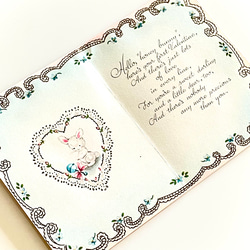 Hello, "honey bunny"
here's your first Valentine,
And there's just lots
of love
in every line,
For you're a sweet darling
and a little dear, too,
And there's nobody
any more precious
than you.